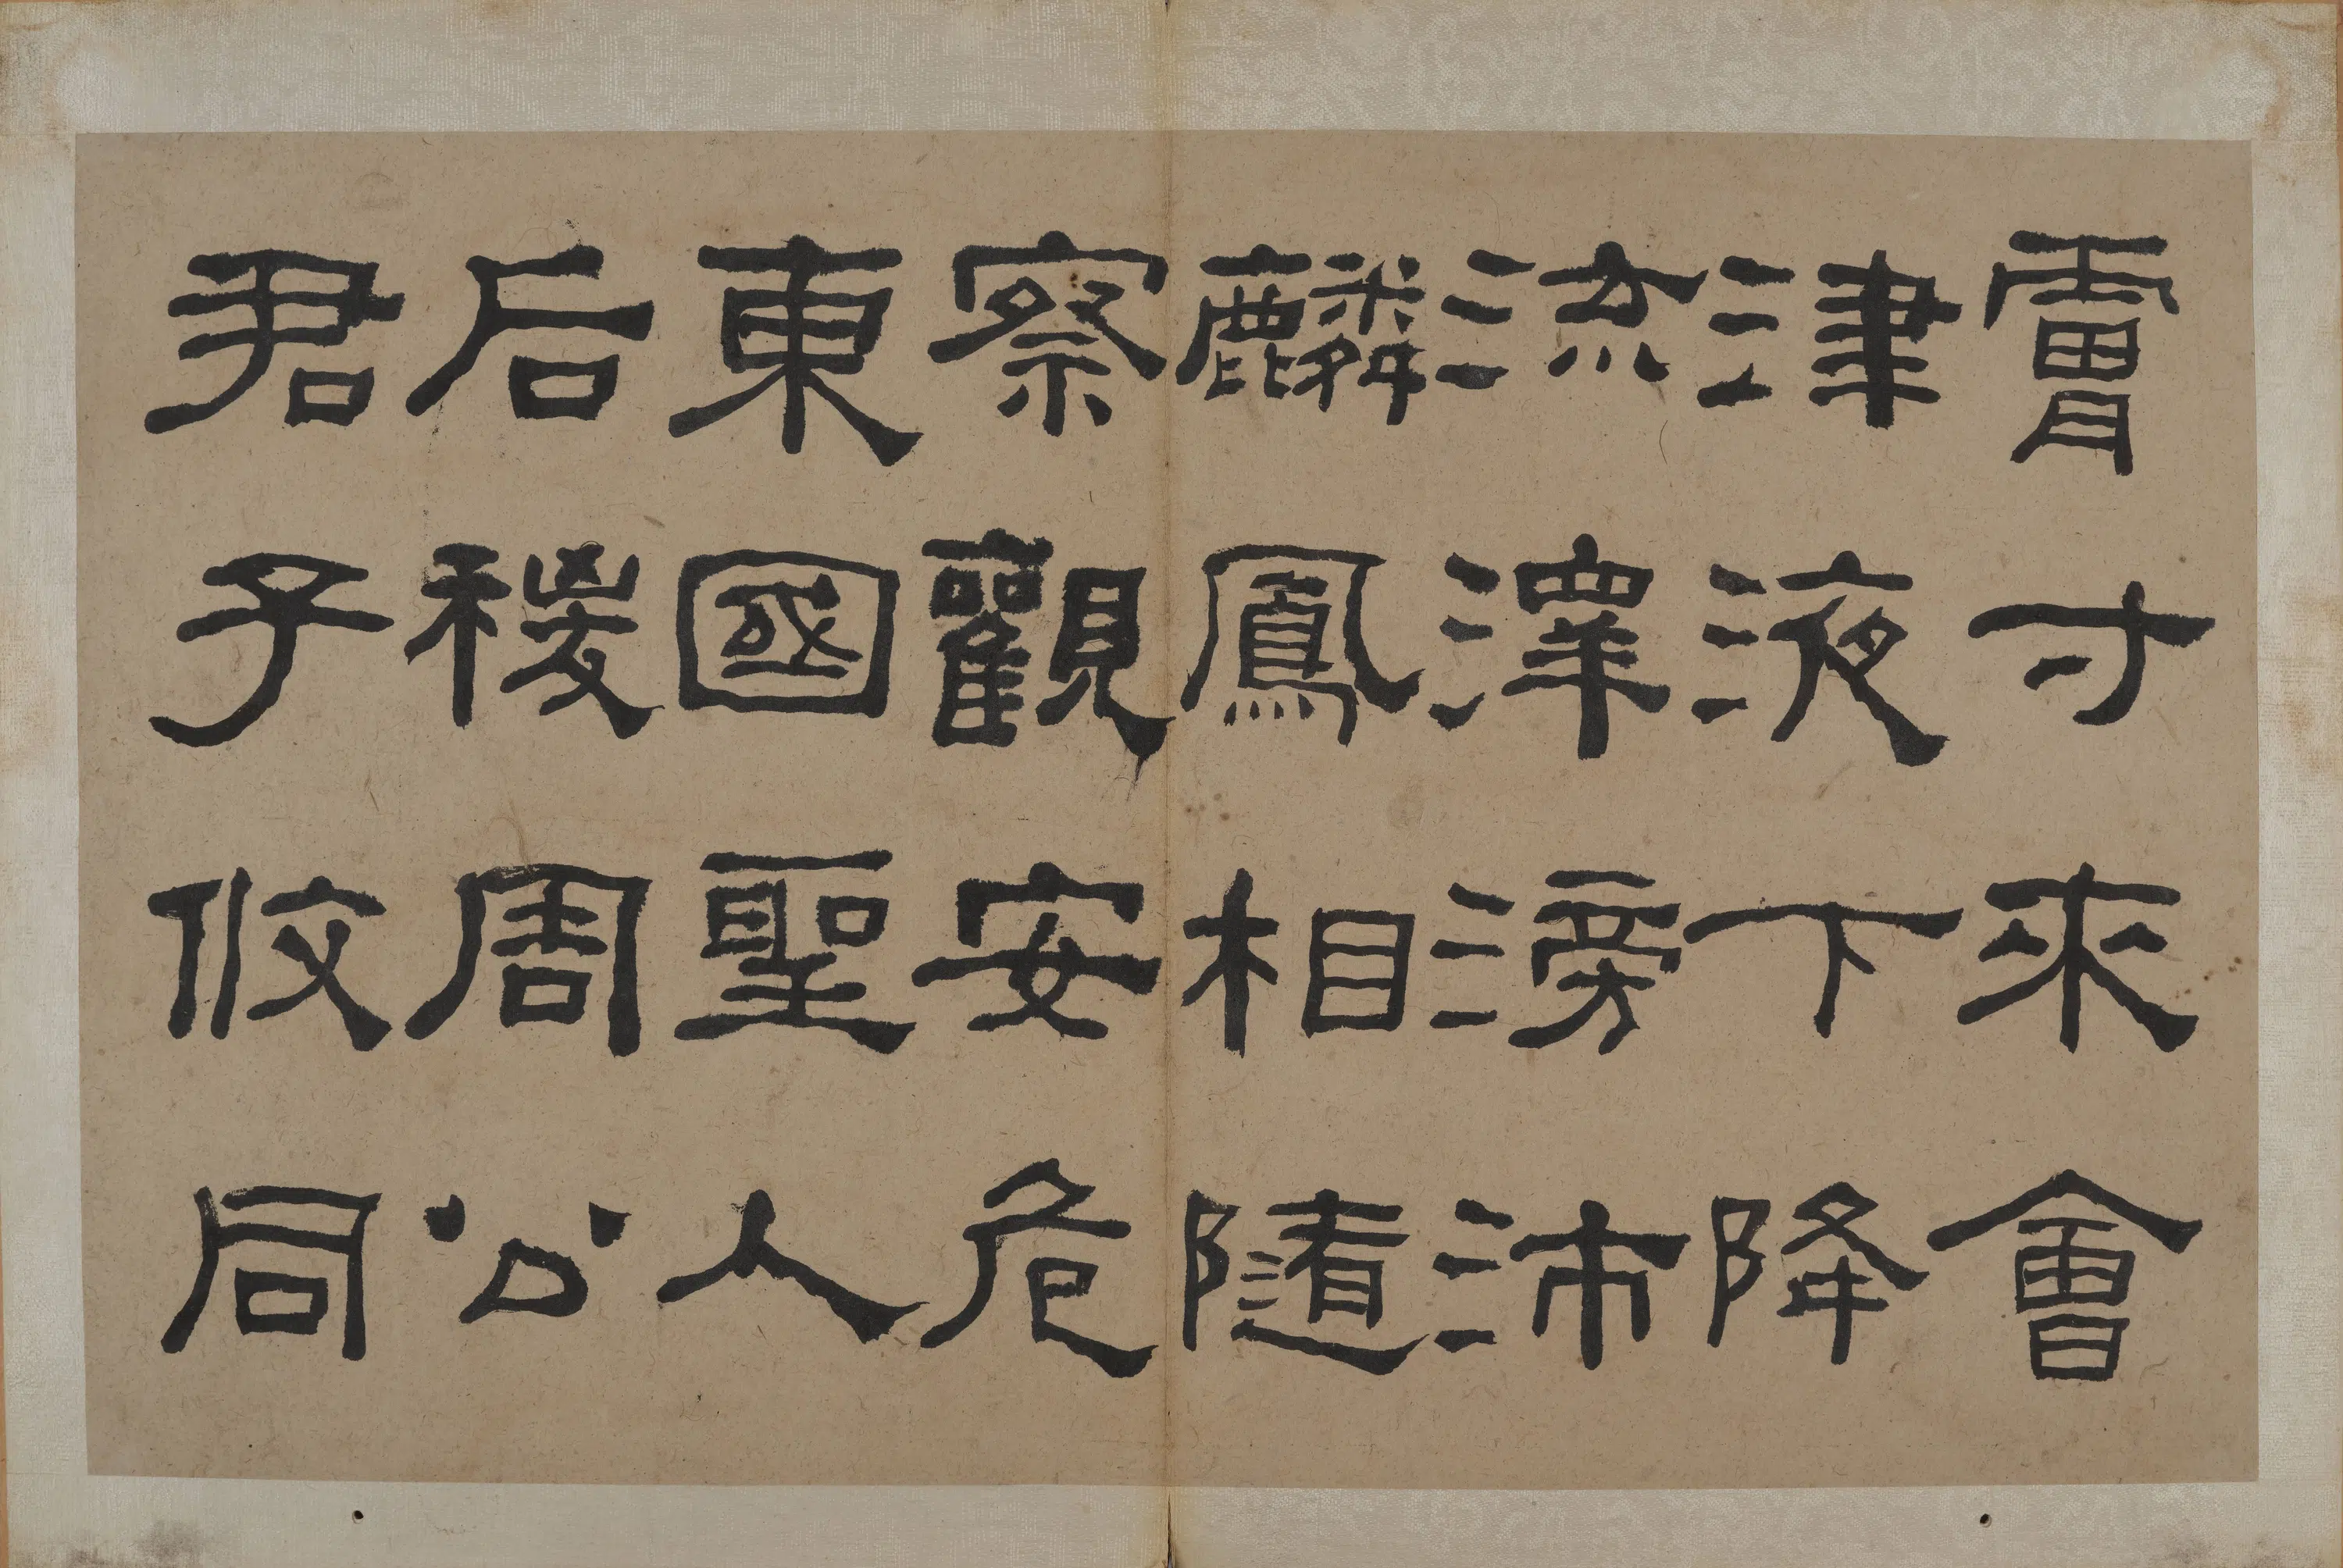 膚寸來會
津液下降
流澤滂沛
麟鳳相隨
察觀安危
東國聖人
后稷周公
君子攸同